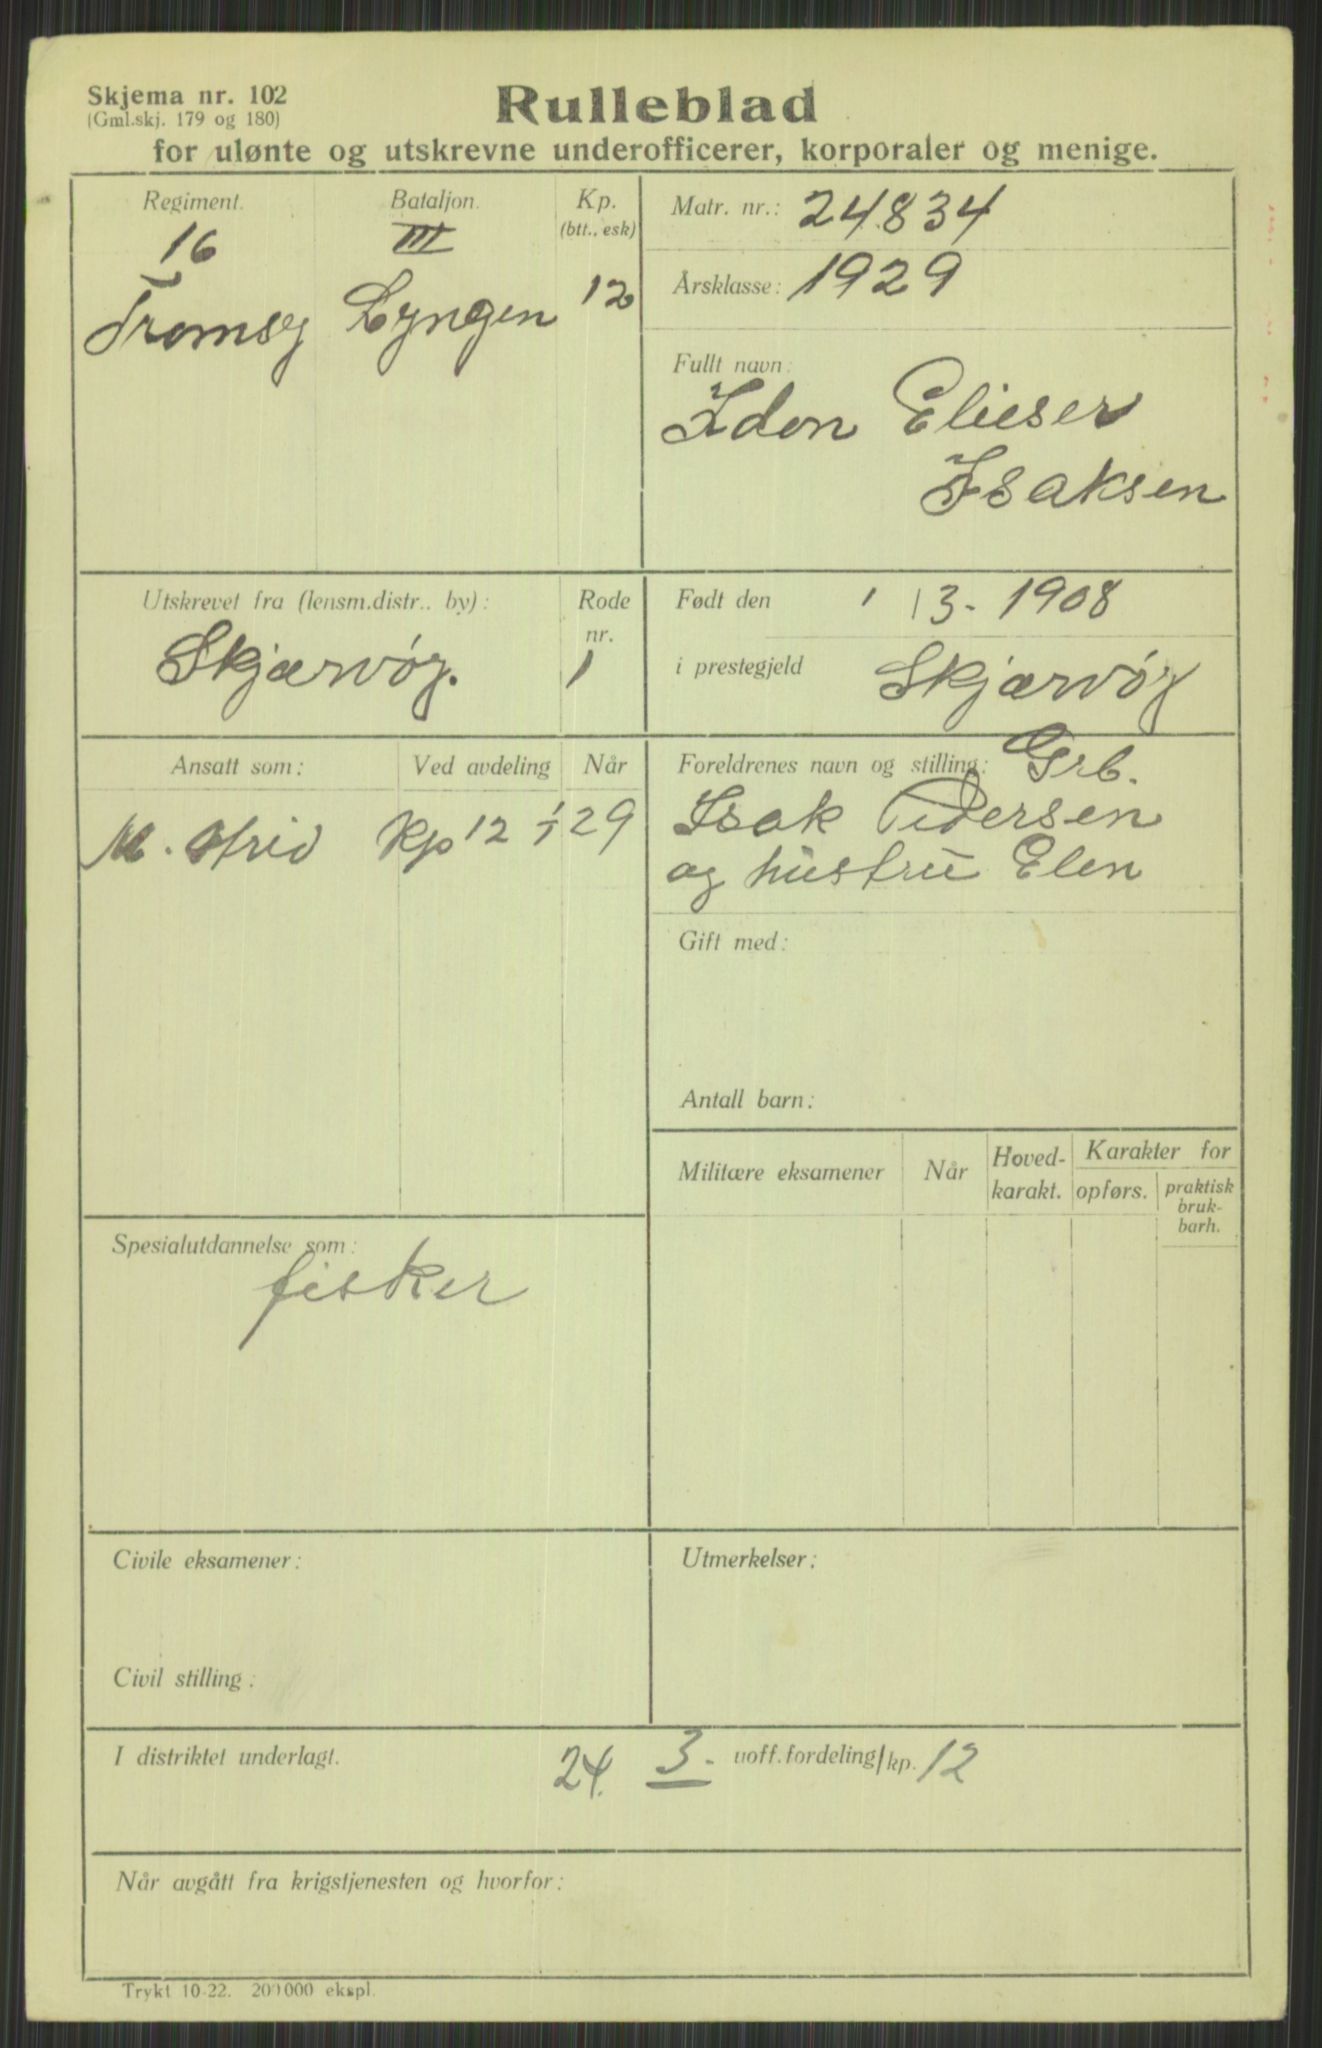 Skjema nr. 102
(Gml.skj. 179 og 180)
Rulleblad
for ulønte og utskrevne underofficerer, korporaler og menige.
Regiment. Bataljon. Kp. (btt., esk)
16 III
Tromsø Lyngen 12
Matr. nr.: 24834
Årsklasse: 1929
Fullt navn:
Idon Elieser
Isaksen
Utskrevet fra (lensm.distr.. by): Rode nr.
Skjærvøy. 1
Født den 1/3-1908
i prestegjeld Skjærvøy
Ansatt som: Ved avdeling Når
M. Kp 12 1/1 29
Foreldrenes navn og stilling: Grb.
Isak Pedersen
og hustru Elen
Gift med:
Antall barn:
Militære eksamener Når Hoved-karakt. Karakter for
opførs. praktisk
bruk-
barh.
Spesialutdannelse som:
fisker
Civile eksamener:
Utmerkelser:
Civil stilling:
I distriktet underlagt. 24. 3. uoff.fordeling/kp. 12
Når avgått fra krigstjenesten og hvorfor:
Trykt 10-22. 200000 ekspl.